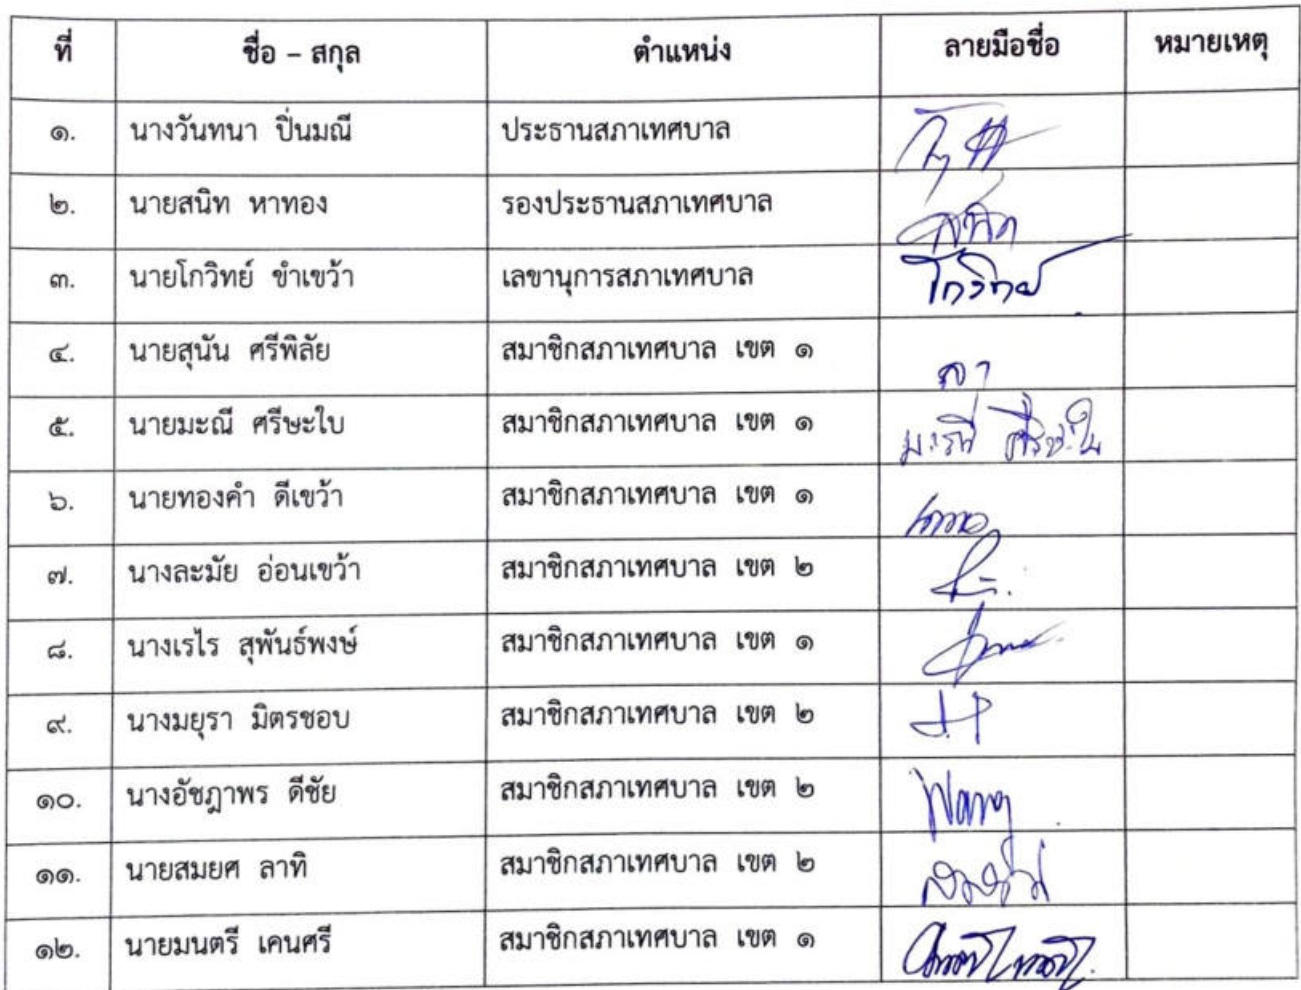 ที่ ชื่อ – สกุล ตำแหน่ง ลายมือชื่อ หมายเหตุ
๑. นางวันทนา ปิ่นมณี ประธานสภาเทศบาล
๒. นายสนิท หาทอง รองประธานสภาเทศบาล สนิท
๓. นายโกวิทย์ ขำเขว้า เลขานุการสภาเทศบาล โกวิทย์
๔. นายสุนัน ศรีพิลัย สมาชิกสภาเทศบาล เขต ๑ ลา
๕. นายมะณี ศรีษะใบ สมาชิกสภาเทศบาล เขต ๑ มะณี ศรีษะใบ
๖. นายทองคำ ดีเขว้า สมาชิกสภาเทศบาล เขต ๑
๗. นางละมัย อ่อนเขว้า สมาชิกสภาเทศบาล เขต ๒
๘. นางเรไร สุพันธ์พงษ์ สมาชิกสภาเทศบาล เขต ๑
๙. นางมยุรา มิตรชอบ สมาชิกสภาเทศบาล เขต ๒
๑๐. นางอัชฎาพร ดีชัย สมาชิกสภาเทศบาล เขต ๒
๑๑. นายสมยศ ลาทิ สมาชิกสภาเทศบาล เขต ๒
๑๒. นายมนตรี เคนศรี สมาชิกสภาเทศบาล เขต ๑